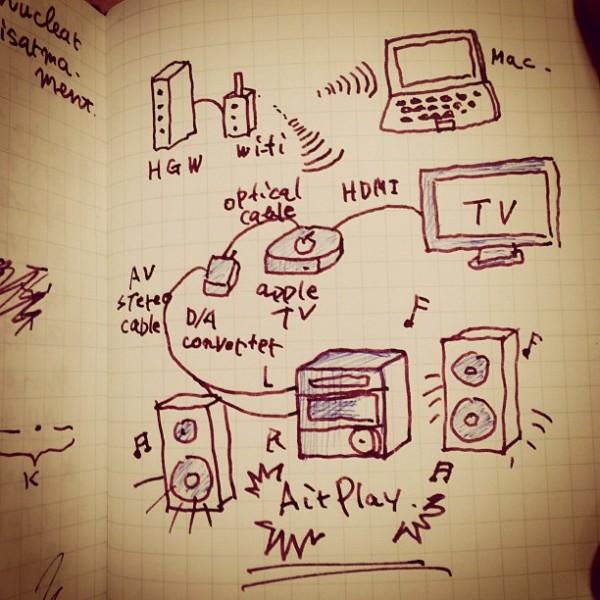 nuclear
isarma.
ment.
Mac.
HGW
wifi
optical
cable
HDMI
TV
AV
stereo
cable
apple
TV
D/A
converter
L
R
AirPlay.
K